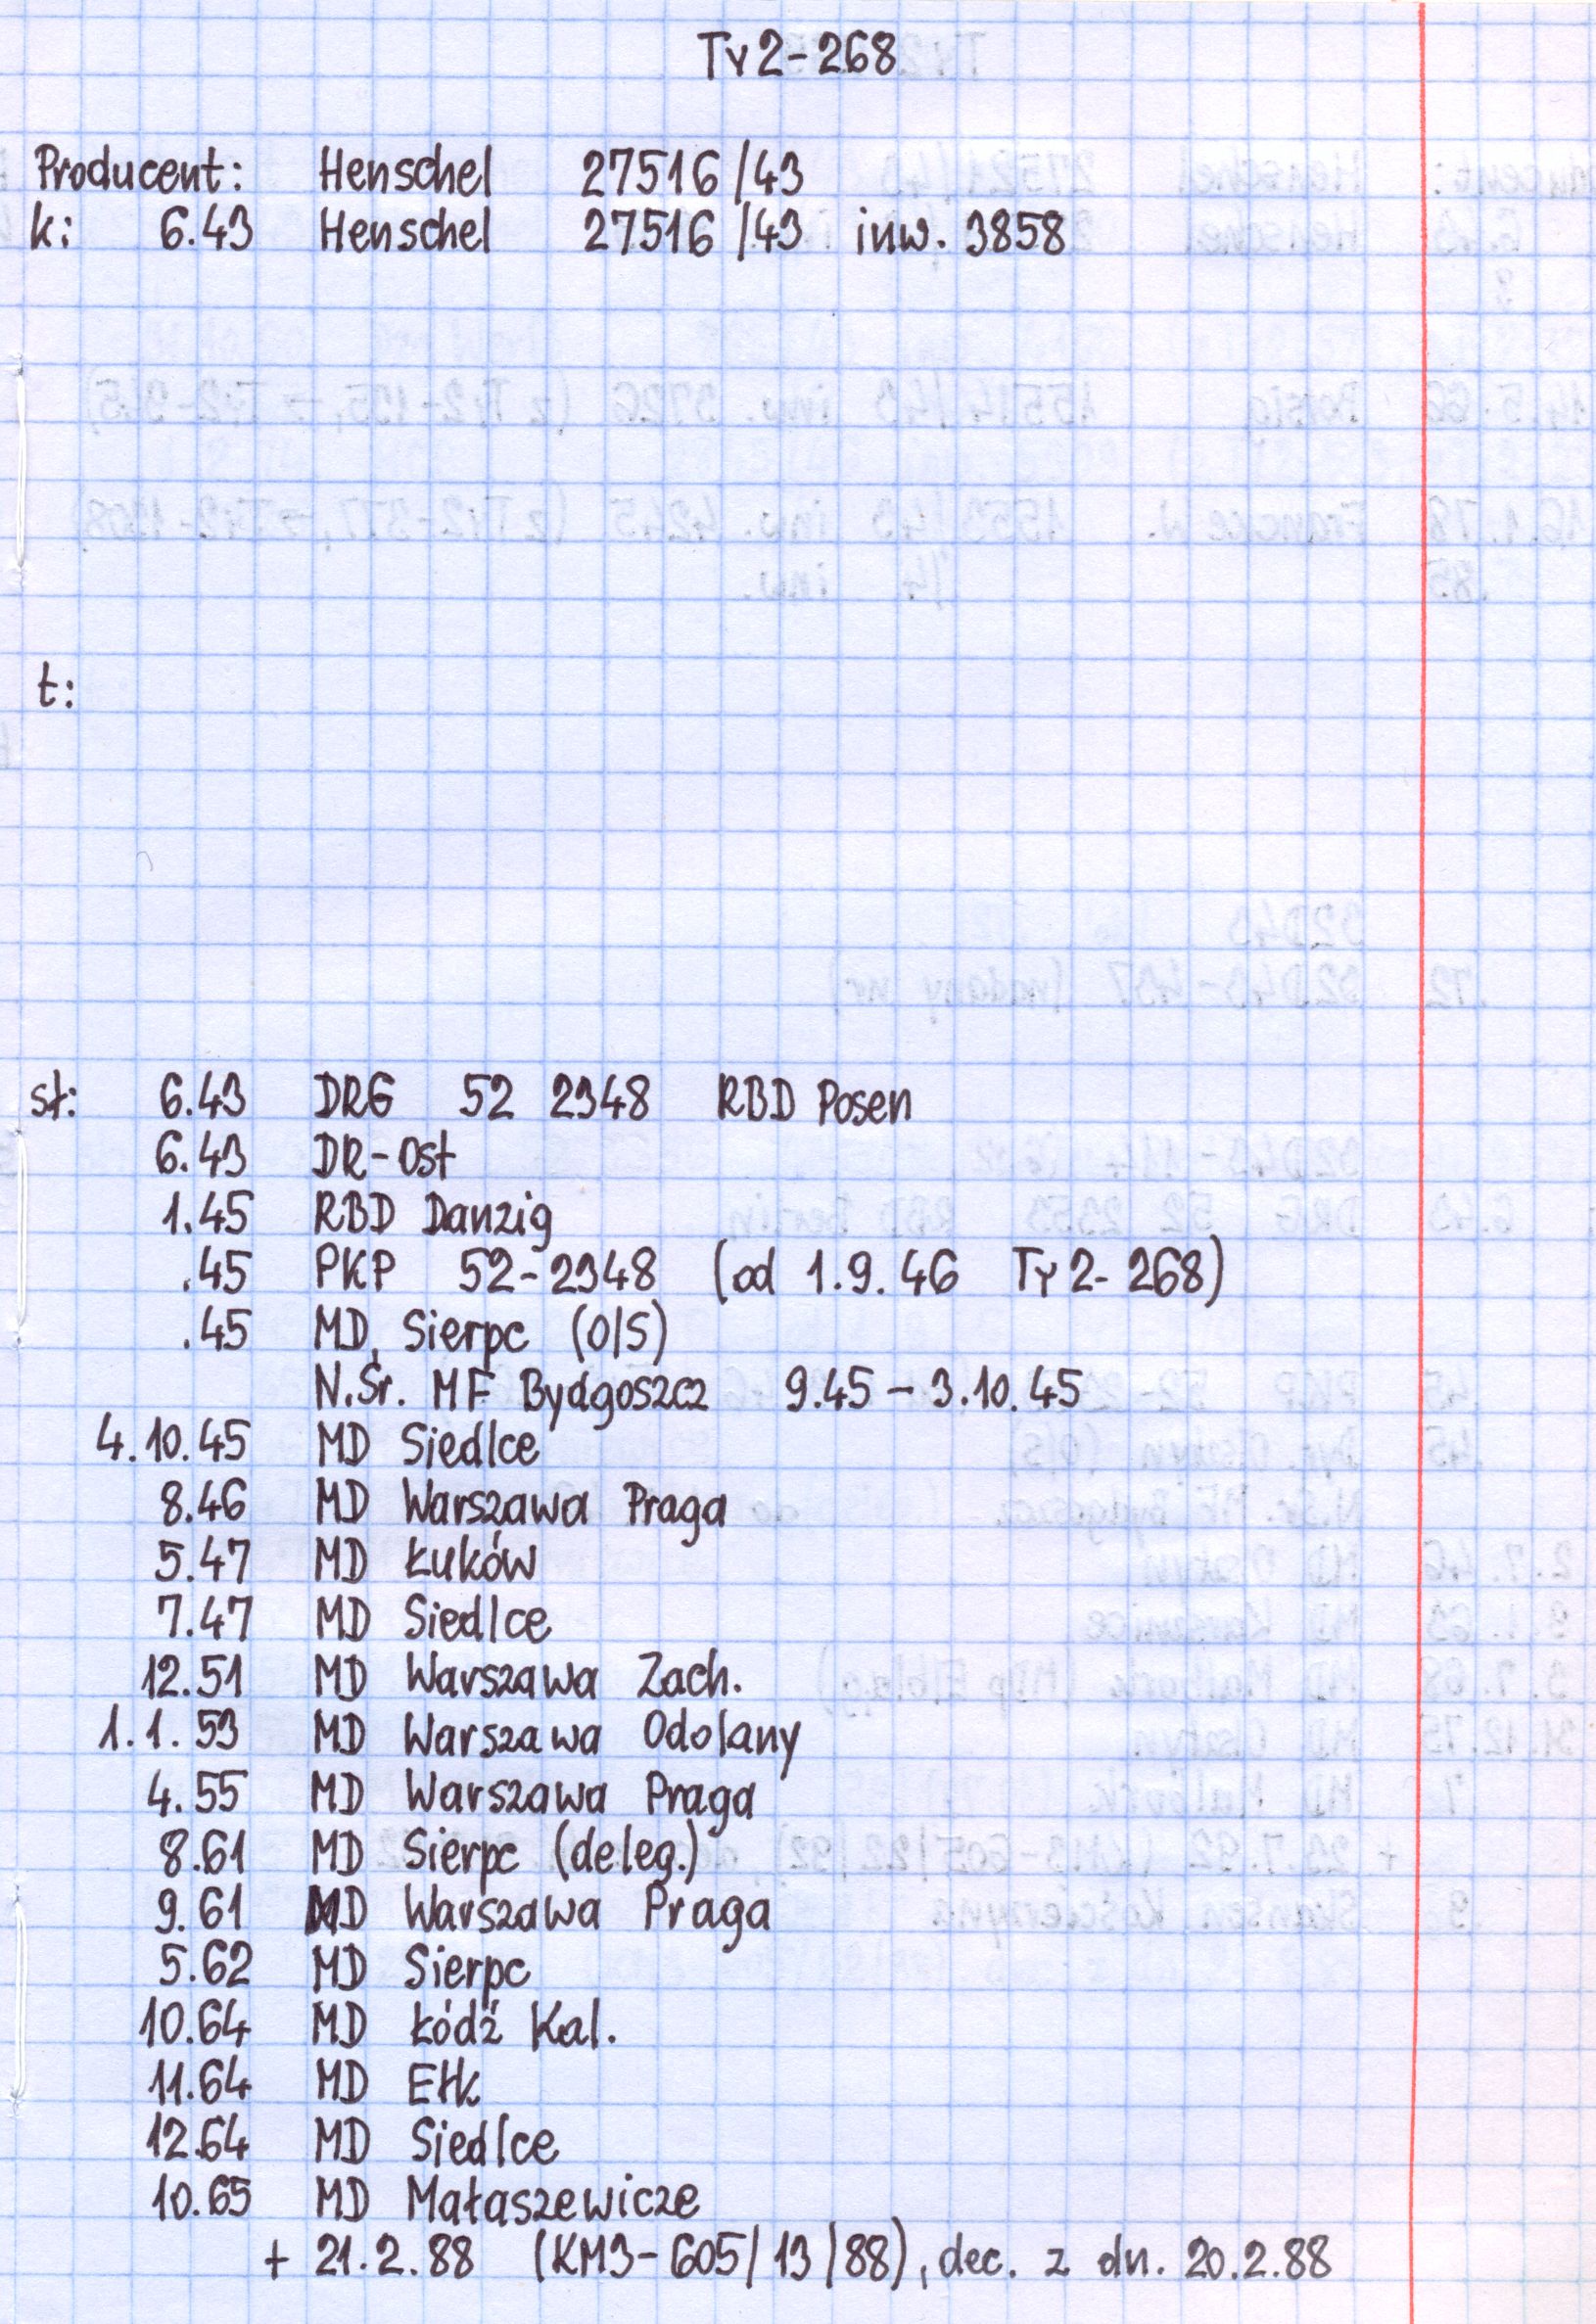 Ty2-268
Producent: Henschel 27516/43
k: 6.43 Henschel 27516/43 inw. 3858
t:
st: 6.43 DRG 52 2348 RBD Posen
6.43 DR-Ost
1.45 RBD Danzig
.45 PKP 52-2348 (od 1.9.46 Ty2-268)
.45 MD Sierpc (O/S)
N.Śr. MF Bydgoszcz 9.45 – 3.10.45
4.10.45 MD Siedlce
8.46 MD Warszawa Praga
5.47 MD Łuków
7.47 MD Siedlce
12.51 MD Warszawa Zach.
1.1.53 MD Warszawa Odolany
4.55 MD Warszawa Praga
8.61 MD Sierpc (deleg.)
9.61 MD Warszawa Praga
5.62 MD Sierpc
10.64 MD Łódź Kal.
11.64 MD Ełk
12.64 MD Siedlce
10.65 MD Małaszewicze
+ 21.2.88 (KM3-605/13/88), dec. z dn. 20.2.88